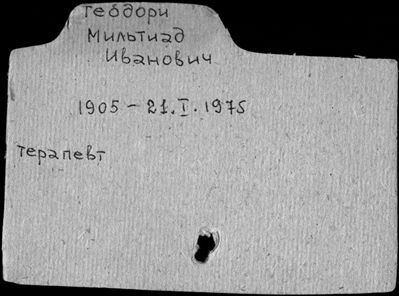 Теодори
Мильтиад
Иванович
1905 – 21.I.1975
терапевт